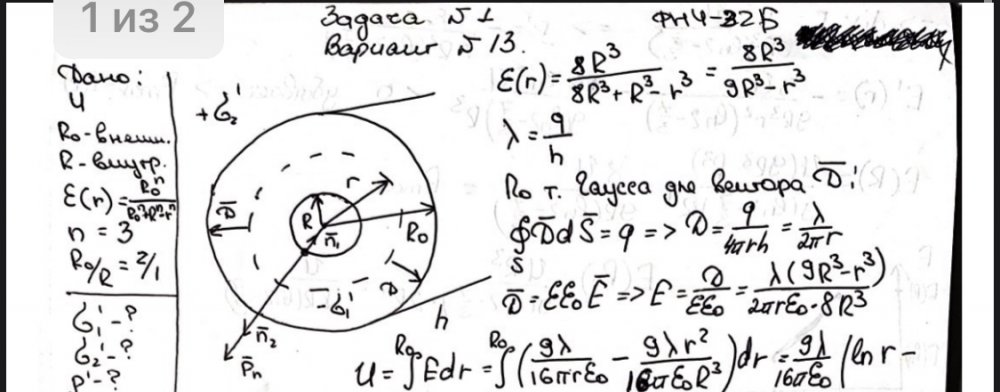 1 из 2
Задача №1
Вариант №13.
ФН4-32Б
Дано:
U
R₀-внешн.
R-внутр.
ε(r)=R₀ⁿ/(R₀ⁿ+Rⁿ-rⁿ)
n = 3
R₀/R = 2/1
σ₁'-?
σ₂'-?
ρ'-?
+σ₂'
r
D̄
R
n̄₁
R₀
-σ₁'
n̄₂
P̄n
h
ε(r) = 8R³/(8R³+R³-r³) = 8R³/(9R³-r³)
λ = q/h
По т. Гаусса для вектора D̄:
∮D̄dS̄ = q => D = q/(4πrh) = λ/(2πr)
S
D̄ = εε₀Ē => E = D/(εε₀) = λ(9R³-r³)/(2πrε₀·8R³)
U = ∫Edr = ∫(9λ/(16πrε₀) - 9λr²/(16πε₀R³))dr = 9λ/(16πε₀) (ln r -